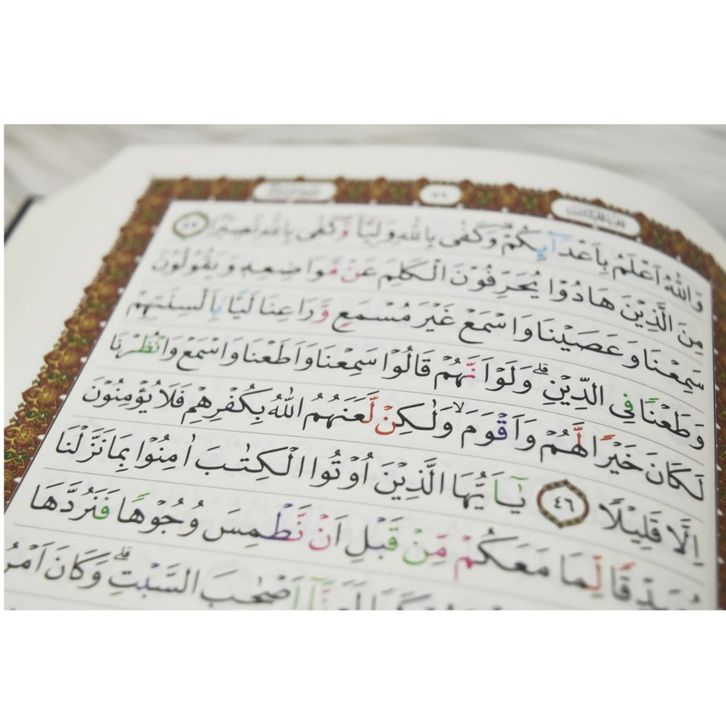 وَاللّٰهُ اَعْلَمُ بِاَعْدَآىِٕكُمْ ۗ وَكَفٰى بِاللّٰهِ وَلِيًّا وَّكَفٰى بِاللّٰهِ نَصِيْرًا ٤٥
مِنَ الَّذِيْنَ هَادُوْا يُحَرِّفُوْنَ الْكَلِمَ عَنْ مَّوَاضِعِهٖ وَيَقُوْلُوْنَ
سَمِعْنَا وَعَصَيْنَا وَاسْمَعْ غَيْرَ مُسْمَعٍ وَّرَاعِنَا لَيًّاۢ بِاَلْسِنَتِهِمْ
وَطَعْنًا فِى الدِّيْنِۗ وَلَوْ اَنَّهُمْ قَالُوْا سَمِعْنَا وَاَطَعْنَا وَاسْمَعْ وَانْظُرْنَا
لَكَانَ خَيْرًا لَّهُمْ وَاَقْوَمَۙ وَلٰكِنْ لَّعَنَهُمُ اللّٰهُ بِكُفْرِهِمْ فَلَا يُؤْمِنُوْنَ
اِلَّا قَلِيْلًا ٤٦ يٰٓاَيُّهَا الَّذِيْنَ اُوْتُوا الْكِتٰبَ اٰمِنُوْا بِمَا نَزَّلْنَا
مُصَدِّقًا لِّمَا مَعَكُمْ مِّنْ قَبْلِ اَنْ نَّطْمِسَ وُجُوْهًا فَنَرُدَّهَا
اَصْحٰبَ السَّبْتِۗ وَكَانَ اَمْرُ